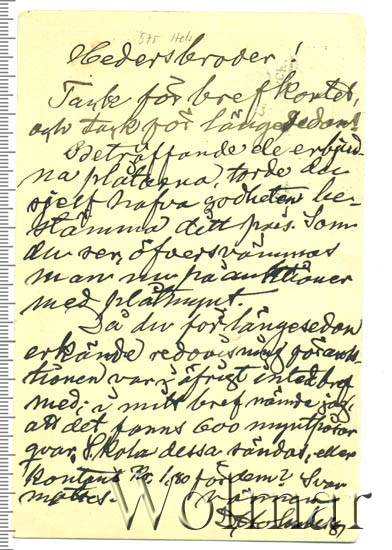 575 Hels
Hedersbroder!
Tack för brefkortet,
och tack för längesedan!
Beträffande de erbjud-
na plåtarna, torde du
sjelf hafva godheten be-
stämma ditt pris. Som
du ser, öfversvämmas
man nu på auktioner
med plåtmynt.
Då du för längesedan
erkände redovisning för auk-
tionen var i öfrigt intet bref
med; i mitt bref nämnde jag,
att det fanns 600 myntpåsar
qvar. Skola dessa sändas, eller
kontant Rc. 1,50 för dem? Svar
motses.
Wolmar